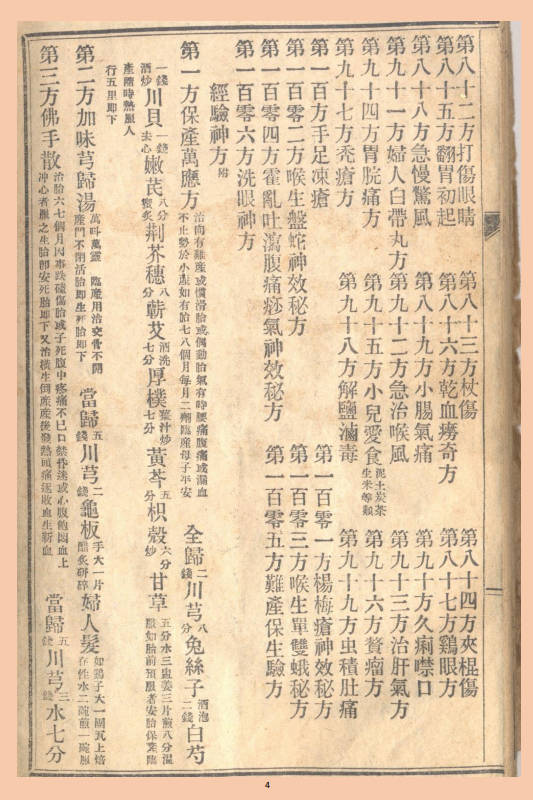 第八十二方打傷眼睛　第八十三方杖傷　第八十四方夾棍傷
第八十五方翻胃初起　第八十六方乾血癆奇方　第八十七方鷄眼方
第八十八方急慢驚風　第八十九方小腸氣痛　第九十方久痢噤口
第九十一方婦人白帶丸方　第九十二方急治喉風　第九十三方治肝氣方
第九十四方胃脘痛方　第九十五方小兒愛食泥土炭茶生米等類　第九十六方贅瘤方
第九十七方禿瘡方　第九十八方解鹽滷毒　第九十九方虫積肚痛
第一百方手足凍瘡　第一百零一方楊梅瘡神效秘方
第一百零二方喉生盤蛇神效秘方　第一百零三方喉生單雙蛾秘方
第一百零四方霍亂吐瀉腹痛痧氣神效秘方　第一百零五方難產保生驗方
第一百零六方洗眼神方
經驗神方附
第一方保產萬應方　治向有難產或慣滑胎或偶動胎氣有時腰痛腹痛或漏血不止勢於小產如有胎七八個月每月二劑臨產母子平安　全歸二錢川芎八分兔絲子酒泡二錢白芍
一錢酒炒川貝一錢去心嫩芪八分蜜炙荆芥穗八分蘄艾酒洗七分厚樸薑汁炒七分黃芩五分枳殼六分炒甘草五分水三盅姜三片煎八分温服如胎前預服者安胎保產臨
產隨時熱服人
行五里即下
第二方加味芎歸湯　萬叫萬靈　臨產用治交骨不開產門不閉活胎即生死胎即下　當歸五錢川芎二錢龜板手大一片醋炙研碎婦人髮如鷄子大一團瓦上焙存性水二碗煎一碗服
第三方佛手散　治胎六七個月因事跌磕傷胎或子死腹中疼痛不已口禁昏迷或心腹飽悶血上冲心者服之生胎即安死胎即下又治橫生倒產產後發熱頭痛逐敗血生新血　當歸五錢川芎三錢水七分
4